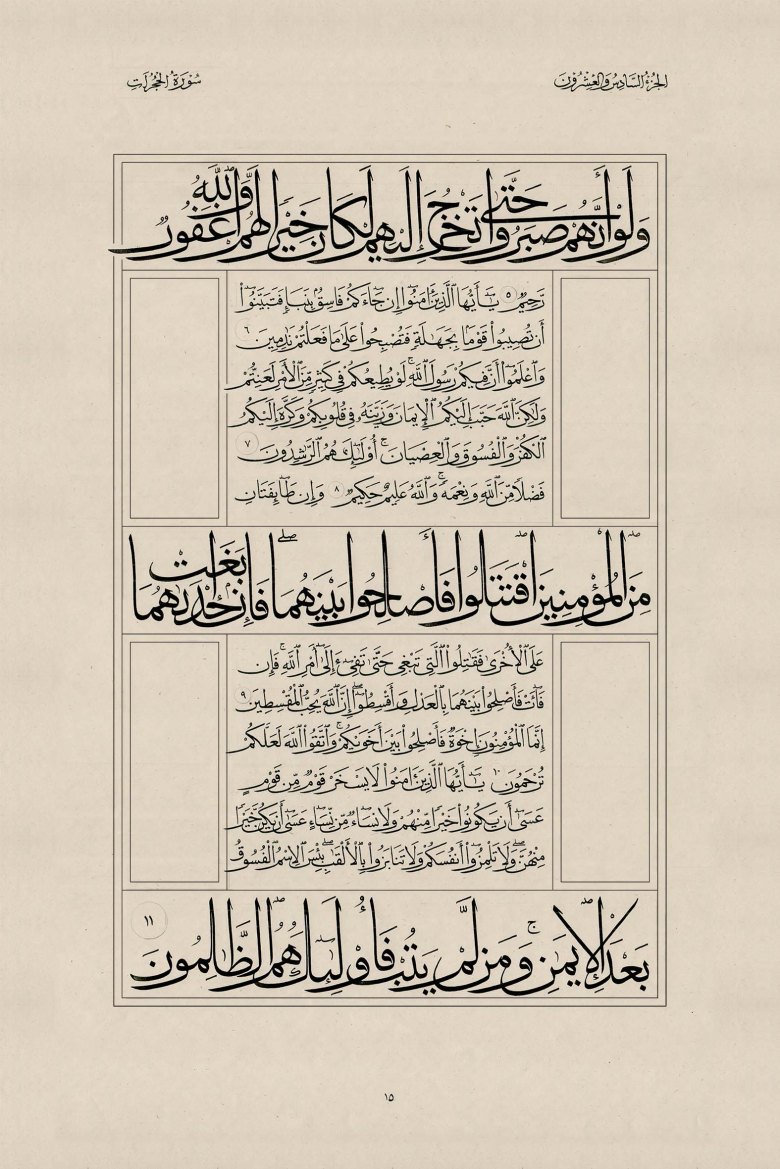 الجزء السادس والعشرون
سورة الحجرات
ولو أنهم صبروا حتى تخرج إليهم لكان خيرا لهم والله غفور
رحيم ٥ يأيها الذين ءامنوا إن جاءكم فاسق بنبإ فتبينوا
أن تصيبوا قوما بجهلة فتصبحوا على ما فعلتم ندمين ٦
واعلموا أن فيكم رسول الله لو يطيعكم في كثير من الأمر لعنتم
ولكن الله حبب إليكم الإيمان وزينه في قلوبكم وكره إليكم
الكفر والفسوق والعصيان أولئك هم الرشدون ٧
فضلا من الله ونعمة والله عليم حكيم ٨ وإن طائفتان
من المؤمنين اقتتلوا فأصلحوا بينهما فإن بغت إحدىهما
على الأخرى فقتلوا التي تبغي حتى تفيء إلى أمر الله فإن
فاءت فأصلحوا بينهما بالعدل وأقسطوا إن الله يحب المقسطين ٩
إنما المؤمنون إخوة فأصلحوا بين أخويكم واتقوا الله لعلكم
ترحمون يأيها الذين ءامنوا لا يسخر قوم من قوم
عسى أن يكونوا خيرا منهم ولا نساء من نساء عسى أن يكن خيرا
منهن ولا تلمزوا أنفسكم ولا تنابزوا بالألقب بئس الاسم الفسوق
بعد الإيمن ومن لم يتب فأولئك هم الظالمون
١١
١٥